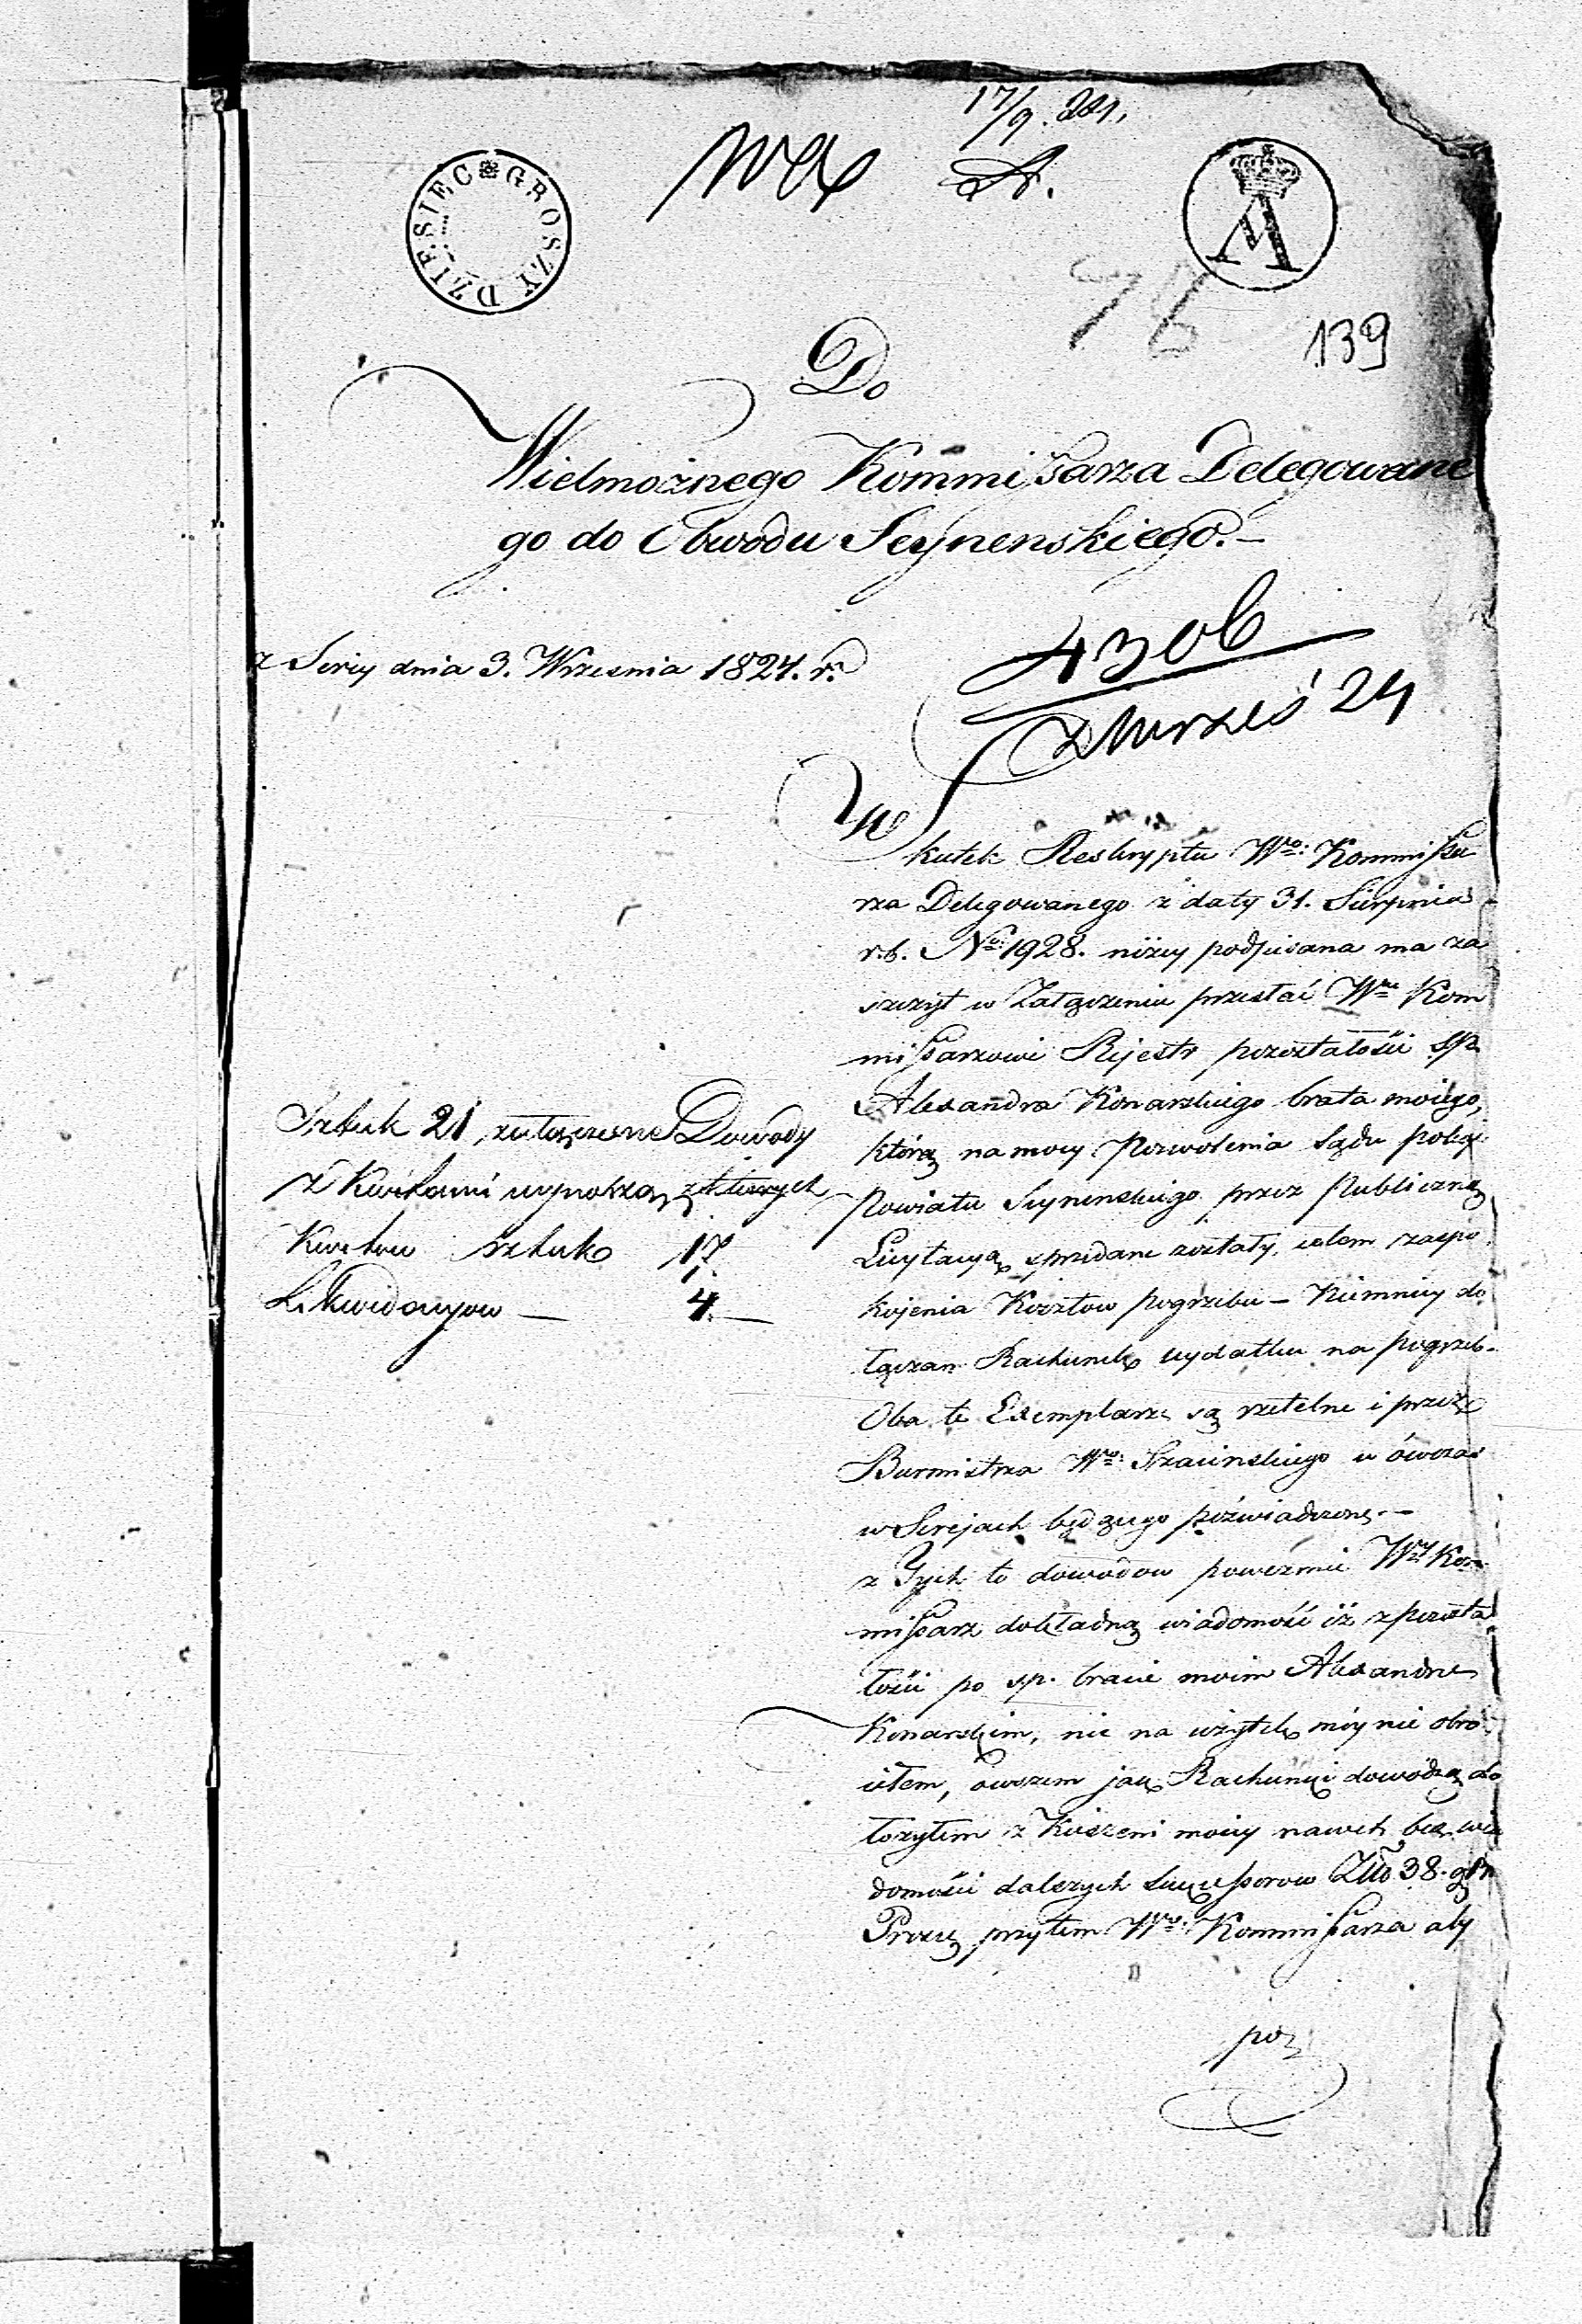 17/9. 24.
DZIESIEC GROSZY
78
139
Do
Wielmożnego Kommissarza Delegowane
go do Obwodu Seynenskiego.–
z Serey dnia 3. Wrzesnia 1824. r.
4306
Wrześ 24
W
Skutek Reskryptu Wgo: Kommissa
rza Delegowanego z daty 31. Sierpnia
r.b. No: 1928. niżey podpisana ma za
szczyt w Załączeniu przesłać Wmu Kom
missarzowi Rejestr pozostałości sp.
Alexandra Konarskiego brata moiego,
którą na mocy Pozwolenia Sądu pokoj:
Powiatu Seynenskiego przez Publiczną
Licytacyą sprzedane zostały, celem zaspo
kojenia Kosztow pogrzebu – Niemniey do
łączam Rachunek wydatku na pogrzeb.
Oba te Exemplarze są rzetelne i przez
Burmistrza Wgo: Szacinskiego w ówczas
w Serejach będącego poświadczone.–
z Tych to dowodow poweźmie Wny Kom
missarz dokładną wiadomość iż z pozosta
łości po sp. bracie moim Alexandrze
Konarskim, nic na użytek móy nie obró
ciłem, owszem jak Rachunki dowodzą do
łożyłem z Kieszeni moiey nawet bez wia
domości dalszych sukcessorow Złło 38. g
Proszę przytem Wgo: Kommissarza aby
po
Sztuk 21 załączone Dowody
z Kwitami wynoszą z których
Kwitow sztuk 17.
Likwidacyow — 4.—